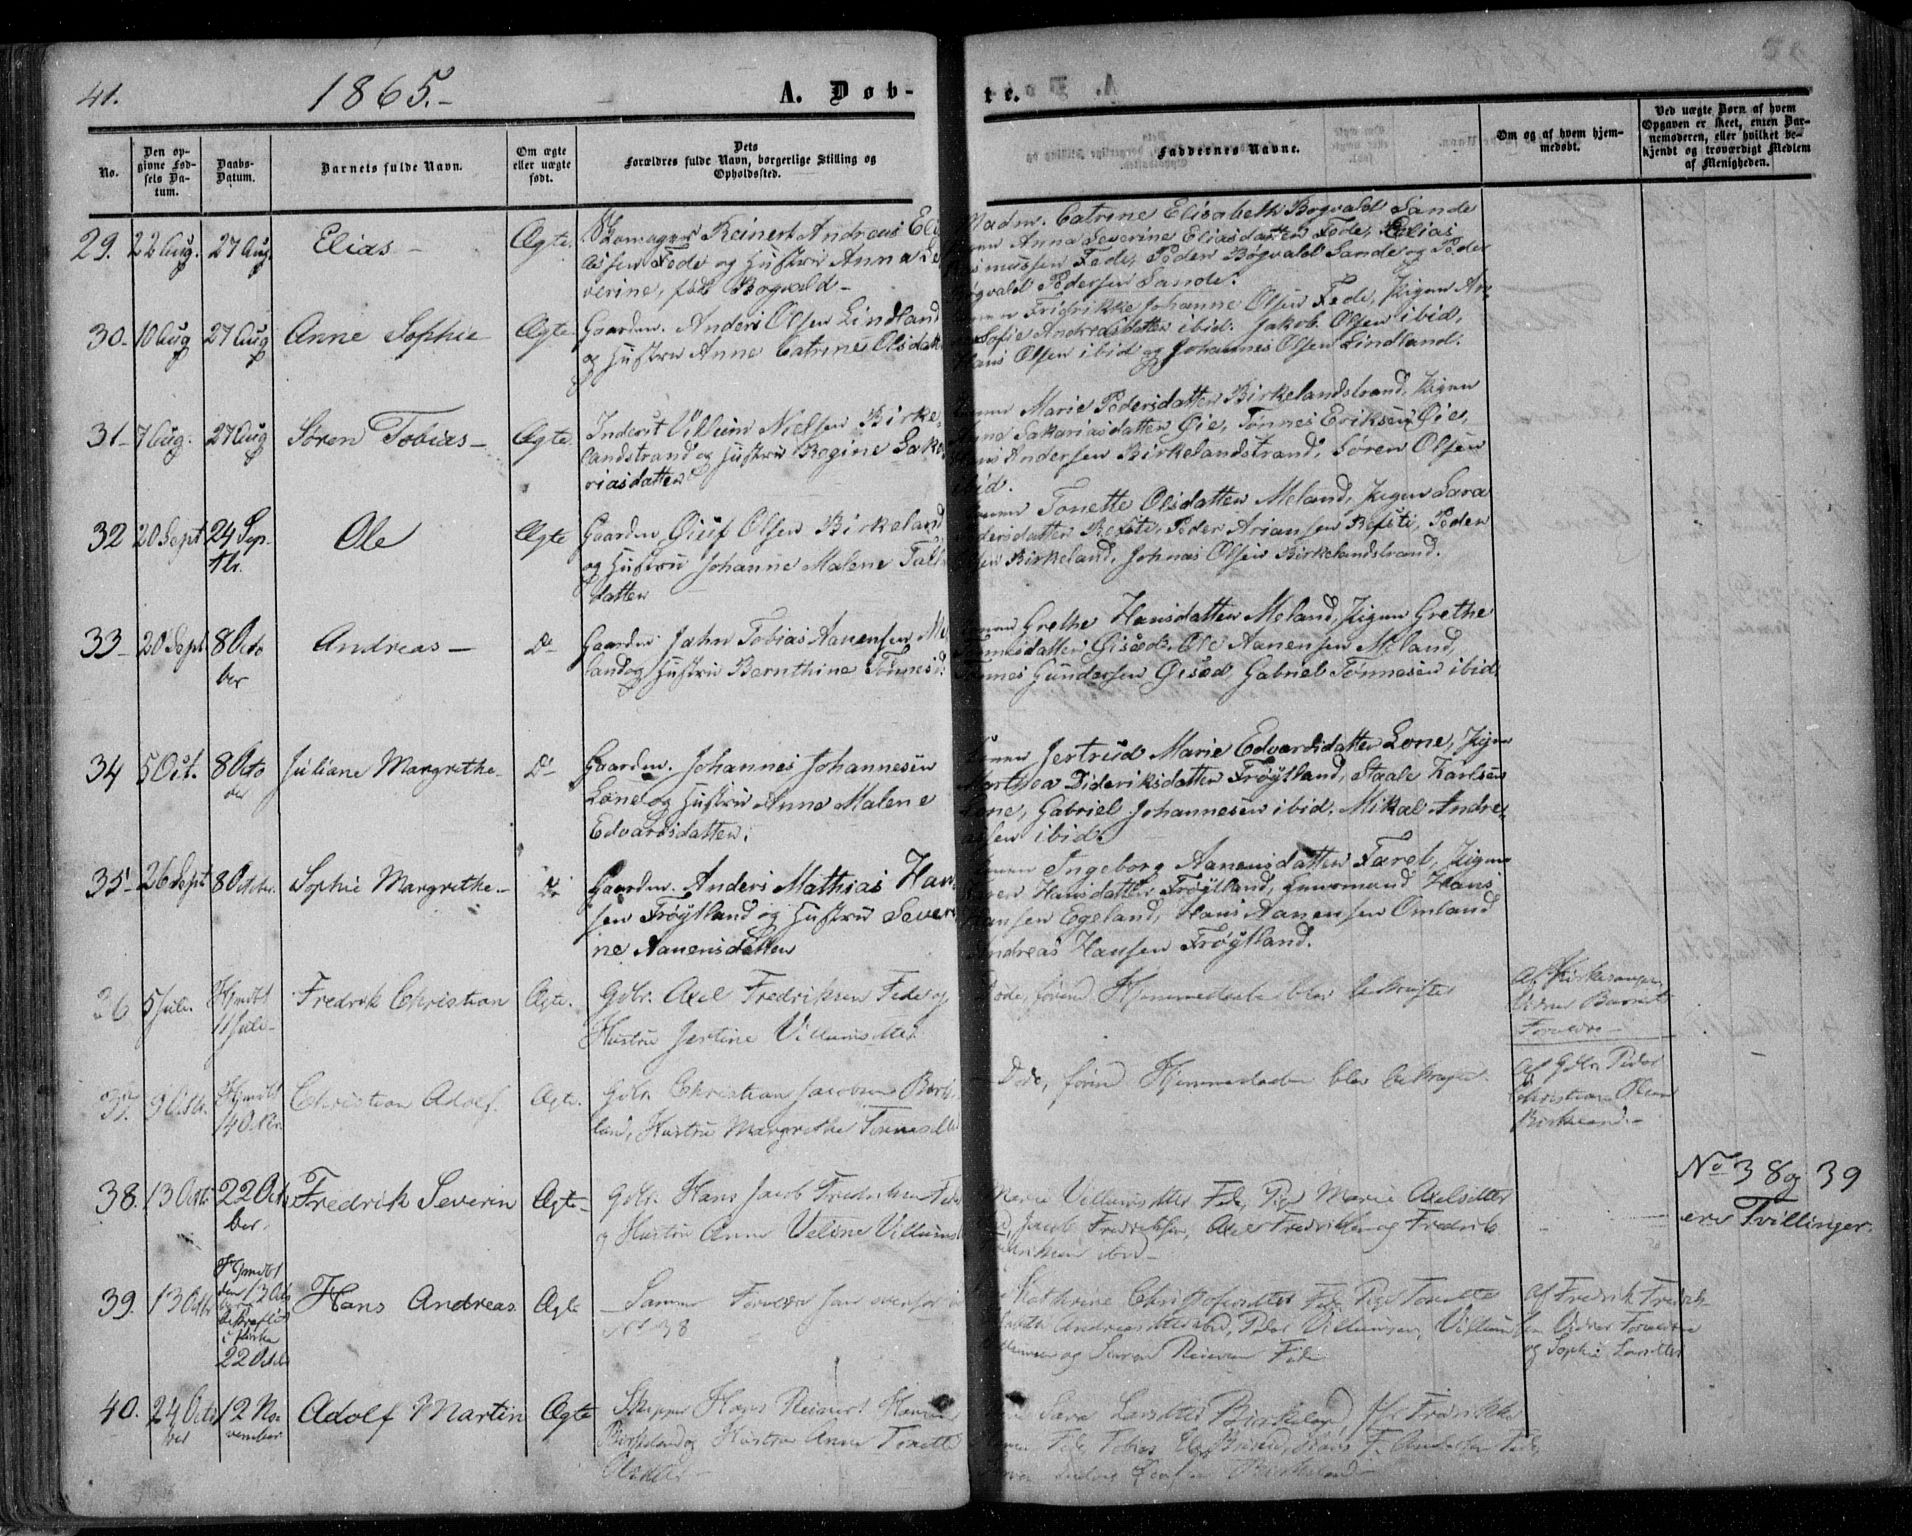 41. 1865.- A. Døb- te.
No.
Den op-
givne Fød-
sels Da-
tum.
Daabs-
Datum.
Barnets fulde Navn.
Om ægte
eller uægte
født.
Dets
Forældres fulde Navn, borgerlige Stilling og
Opholdssted.
Faddernes Navne.
Om og af hvem hjem-
medøbt.
Ved uægte Børn af hvem
Opgaven er skeet, enten Bar-
nemoderen, eller hvilket be-
kjendt og troværdigt Medlem
af Menigheden.
29. 22 Aug. 27 Aug. Elias - Ægte. Skomager Reinert Andreas Eli
assen Fede og Hustru Anna Se
verine, født Bogvald -
Madm. Catrine Elisabeth Bogvald Sande
Anna Severine Eliasdatter Fede, Elias
Fede, Peder Bøgvald Sande og Peder
Bøgvald Pedersen Sande.
30. 10 Aug 27 Aug Anne Sophie Ægte Gaardm. Anders Olsen Lindland
og Hustru Anne Catrine Olsdatt
Fridrikke Johanne Olsen Fede, Pigen An
Sofie Andredsdatter ibid. Jakob Olsen ibid,
Hans Olsen ibid og Johannes Olsen Lindland.
31- 7 Aug. 27 Aug Søren Tobias - Ægte Inderst Villum Nielsen Birke,
landstrand og Hustru Bogine Saka
riasdatter
Marie Pedersdatter Birkelandstrand, Pigen
Sakariasdatter Øie, Tønnes Eriksen Øie,
Andersen Birkelandstrand, Søren Olsen
ibid.
32 20 Sept 24 Sep
tbr. Ole Ægte Gaardm Oluf Olsen Birkeland
og Hustru Johanne Malene Tall
datter
Tonette Olsdatter Meland, Pigen Sara
Pedersdatter Refsti, Peder Ariansen Refsti, Peder
Olsen Birkeland, Johnas Olsen Birkelandstrand.
33- 20 Sept 8 Octo
ber Andreas - Do Gaardm. Jahn Tobias Aanensen Me
land og Hustru Bernthine Tønnesd.
Grethe Hansdatter Meland, Pigen Grethe
Tønnesdatter Øisød, Ole Aanensen Meland,
Tønnes Gundersen Øisød, Gabriel Tønnesen ibid.
34 5 Oct. 8 Octo
Juliane Margrethe - Do Gaardm. Johannes Johannesen
Lone og Hustru Anne Malene
Edvardsdatter.
Jertrud Marie Edvardsdatter Lone, Pigen
Marthea Dideriksdatter Frøytland, Staale Karlsen
Lone, Gabriel Johannesen ibid. Mikal Andre,
assen ibid.
35- 26 Sept 8 October Sophie Margrethe - Do Gaardm. Anders Mathias Han
sen Frøytland og Hustru Severi
ne Aanensdatter
Ingeborg Aanensdatter Faret, Pigen
Karen Hansdatter Frøytland, Hans
Hansen Egeland, Hans Aanensen Omland
Andreas Hansen Frøytland.
36 5 Juli. Hjmdbt
11 Juli- Fredrik Christian Ægte. Gdbr. Axel Fredriksen Fede og
Hustru Jertine Villumsdtter
Døde, førend Hjemmedaaben blev bekræftet
Af Kirkesanger
Barnets
Forældre -
37. 9 Octbr. Hjmdbt
14 Octbr Christian Adolf. Ægte. Gdbr. Christian Jacobsen Birke
land, Hustru Margrethe Tønnesdtt
Døde, førend Hjemmedaaben blev bekræftet.
Af Gdbr. Peder
Christian Olsen
Birkeland. -
38. 13 Octbr 22 Octo
ber. Fredrik Severin Ægte- Gdbr. Hans Jacob Fredriksen Fede
og Hustru Anne Veline Villumsd
Marie Villumsdtter Fede, Pige Marie Axelsdtter
Jacob Fredriksen, Axel Fredriksen og Fredrik
No 38 og 39
ere Tvillinger.
39. 13 Octbr Hjmdbt
den 13 Octo
ber
bekræftet
i Kirke
22 Octbr Hans Andreas Ægte - Samme Forældre som ovenfor
No 38
Kathrine Christofersdtter Fede Pige Tonette
Andreasdtter ibid, Peder Villumsen, Villum
og Søren Fede
Af Fredrik Fredrik-
sen
og Sophie Larsdtter
40. 24 Octo
ber 12 No-
vember Adolf Martin Ægte Skipper Hans Reinert Hansen
Birkeland og Hustru Anne Tonette
Olsdtter -
Sara Larsdtter Birkeland, Fredrikke
Fede, Tobias
Birkeland -